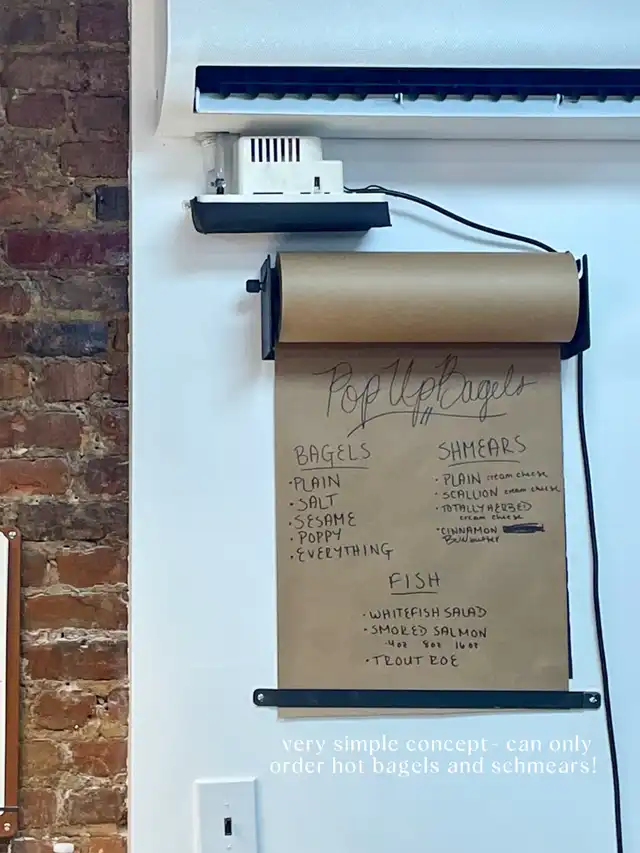 Pop Up Bagels
BAGELS
• PLAIN
• SALT
• SESAME
• POPPY
• EVERYTHING
SHMEARS
• PLAIN cream cheese
• SCALLION cream cheese
• TOTALLY HERBED
cream cheese
• CINNAMON
butter
FISH
• WHITEFISH SALAD
• SMOKED SALMON
4oz 8oz 16oz
• TROUT ROE
very simple concept - can only
order hot bagels and schmears!